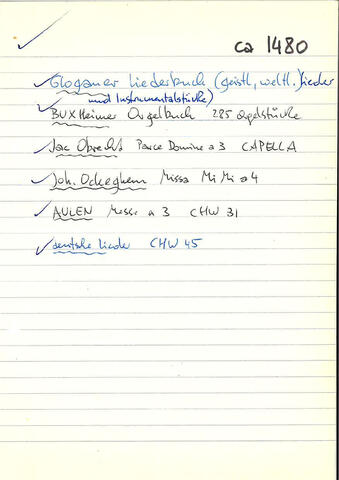 ca 1480
Glogauer Liederbuch (geistl, weltl. Lieder
und Instrumentalstücke)
BUXHeimer Orgelbuch 285 Orgelstücke
Jac Obrecht Parce Domine a 3 CAPELLA
Joh. Ockeghem Missa Mi Mi a 4
AULEN Messe a 3 CHW 31
deutsche Lieder CHW 45